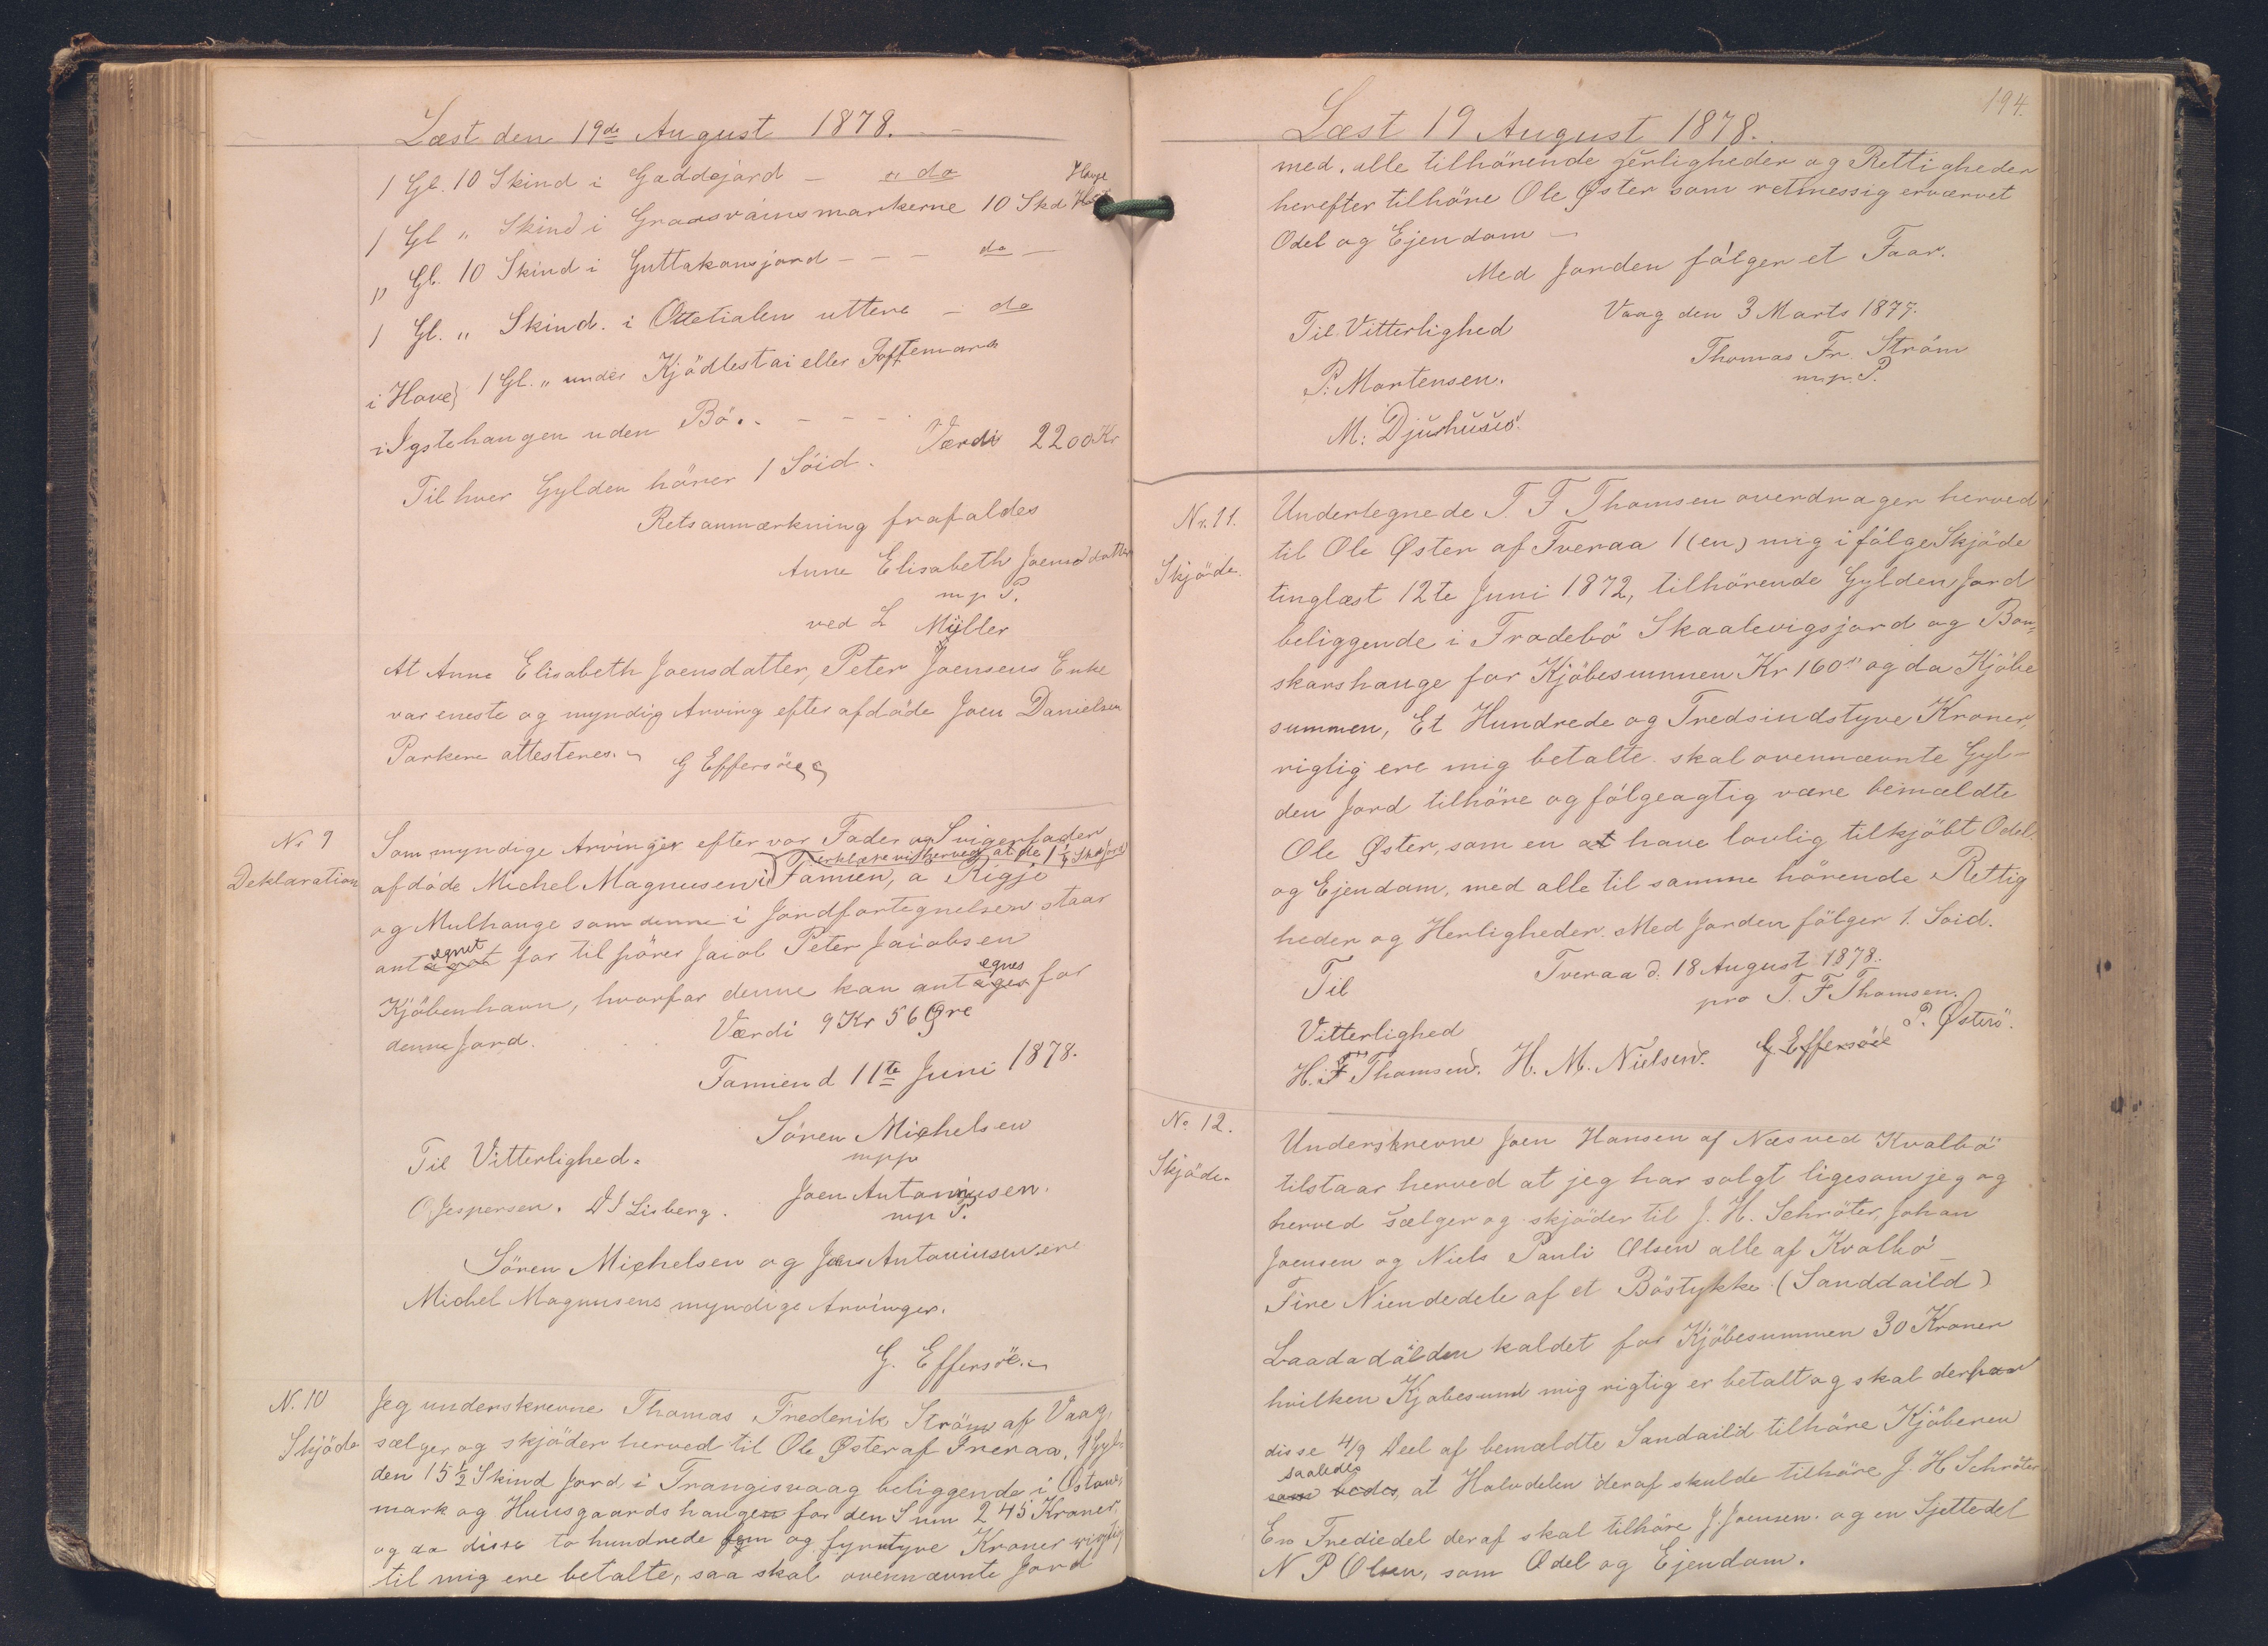 Læst den 19de August 1878.
1 Gl. 10 Skind i Gaddejard - " do
1 Gl " Skind i Graasvainsmarkerne 10 Skd Hauge
" Gl. 10 Skind i Guttakonsjord - - - do -
1 Gl. " Skind. i Ottetialen uttere - do
i Have} 1 Gl. " under Kjödlestai eller Toftemark
i Igstehaugen uden Bö. - - -
Til hver Gylden hörer 1 Söid. Værdi 2200 Kr
Retsanmærkning frafaldes
Anne Elisabeth Joensdatter
m p P.
ved L Müller
At Anne Elisabeth Joensdatter, Peter Joensens Enke
var eneste og myndig Arving efter afdöde Joen Danielsen
Porkere attesteres. G Effersöe
Nr 9
Deklaration
Som myndige Arvinger efter vor Fader og Svigerfader
afdöde Michel Magnusen i Famien, erklære vi herved at de 1 1/4 Skd Jord
i Famien, a Rigje
og Mulhauge som denne i Jordfortegnelsen staar
antegnet for til hörer Jaiob Peter Jaiobsen
Kjöbenhavn, hvorfor denne kan antegnes for
denne Jord. Værdi 9 Kr 56 Øre
Famien d 11te Juni 1878.
Til Vitterlighed. Sören Michelsen
mpp
O Jespersen. D J Lisberg. Joen Antoniusen.
mp P.
Sören Michelsen og Joens Antoniusen ere
Michel Magnusens myndige Arvinger.
G. Effersöe.
N. 10
Skjöde
Jeg underskrevne Thomas Frederik Ström af Vaag,
sælger og skjöder herved til Ole Øster af Tveraa, 1 Gyl-
den 15 1/2 Skind Jord i Trangisvaag beliggende i Østan-
mark og Huusgaardshaugen for den Sum 245 Kroner,
og da disse to hundrede fem og fyrretyve Kroner rigtig
til mig ere betalte, saa skal ovennævnte Jord
194.
Læst 19 August 1878.
med. alle tilhörende herligheder og Rettigheder
herefter tilhöre Ole Øster som retmessig erværvet
Odel og Ejendom -
Med Jorden fölger et Faar.
Til Vitterlighed Vaag den 3 Marts 1875.
Thomas Fr. Ström
P. Mortensen. m.p. P.
M: Djurhuus.
Nr. 11.
Skjöde.
Undertegnede T. F Thomsen overdrager herved
til Ole Øster af Tveraa 1 (en) mig ifölge Skjöde
tinglæst 12te Juni 1872, tilhörende Gylden Jord
beliggende i Frodebö Skaalevigsjord og Bon-
skarshauge for Kjöbesummen Kr 160 " og da Kjöbe
summen, Et Hundrede og Tredsindstyve Kroner,
rigtig ere mig betalte. skal ovennævnte Gyl-
den Jord tilhöre og fölgeagtig være bemældte
Ole Øster, som en at have lovlig tilkjöbt Odel
og Ejendom, med alle til samme hörende Rettig
heder og Herligheder. Med Jorden fölger 1. Soid.
Til Tveraa d. 18 August 1878.
pro T. F Thomsen.
Vitterlighed P. Østerö.
H. F Thomsen. H. M. Nielsen. G Effersöe
No 12.
Skjöde.
Underskrevne Joen Hansen af Næs ved Kvalbö
tilstaar herved at jeg har solgt ligesom jeg og
herved sælger og skjöder til J. H. Schröter, Johan
Joensen og Niels Pauli Olsen alle af Kvalbö
Fire Niendedele af et Böstykke (Sanddaild)
Laadadailden kaldet for Kjöbesummen 30 Kroner
hvilken Kjøbesum mig rigtig er betalt og skal derfor
disse 4/9 Deel af bemældte Sandaild tilhöre Kjöberen
saaledes, at Halvdelen deraf skulde tilhöre J. H Schröter
En Trediedel deraf skal tilhöre J. Joensen. og en Sjettedel
N P Olsen, som Odel og Ejendom.